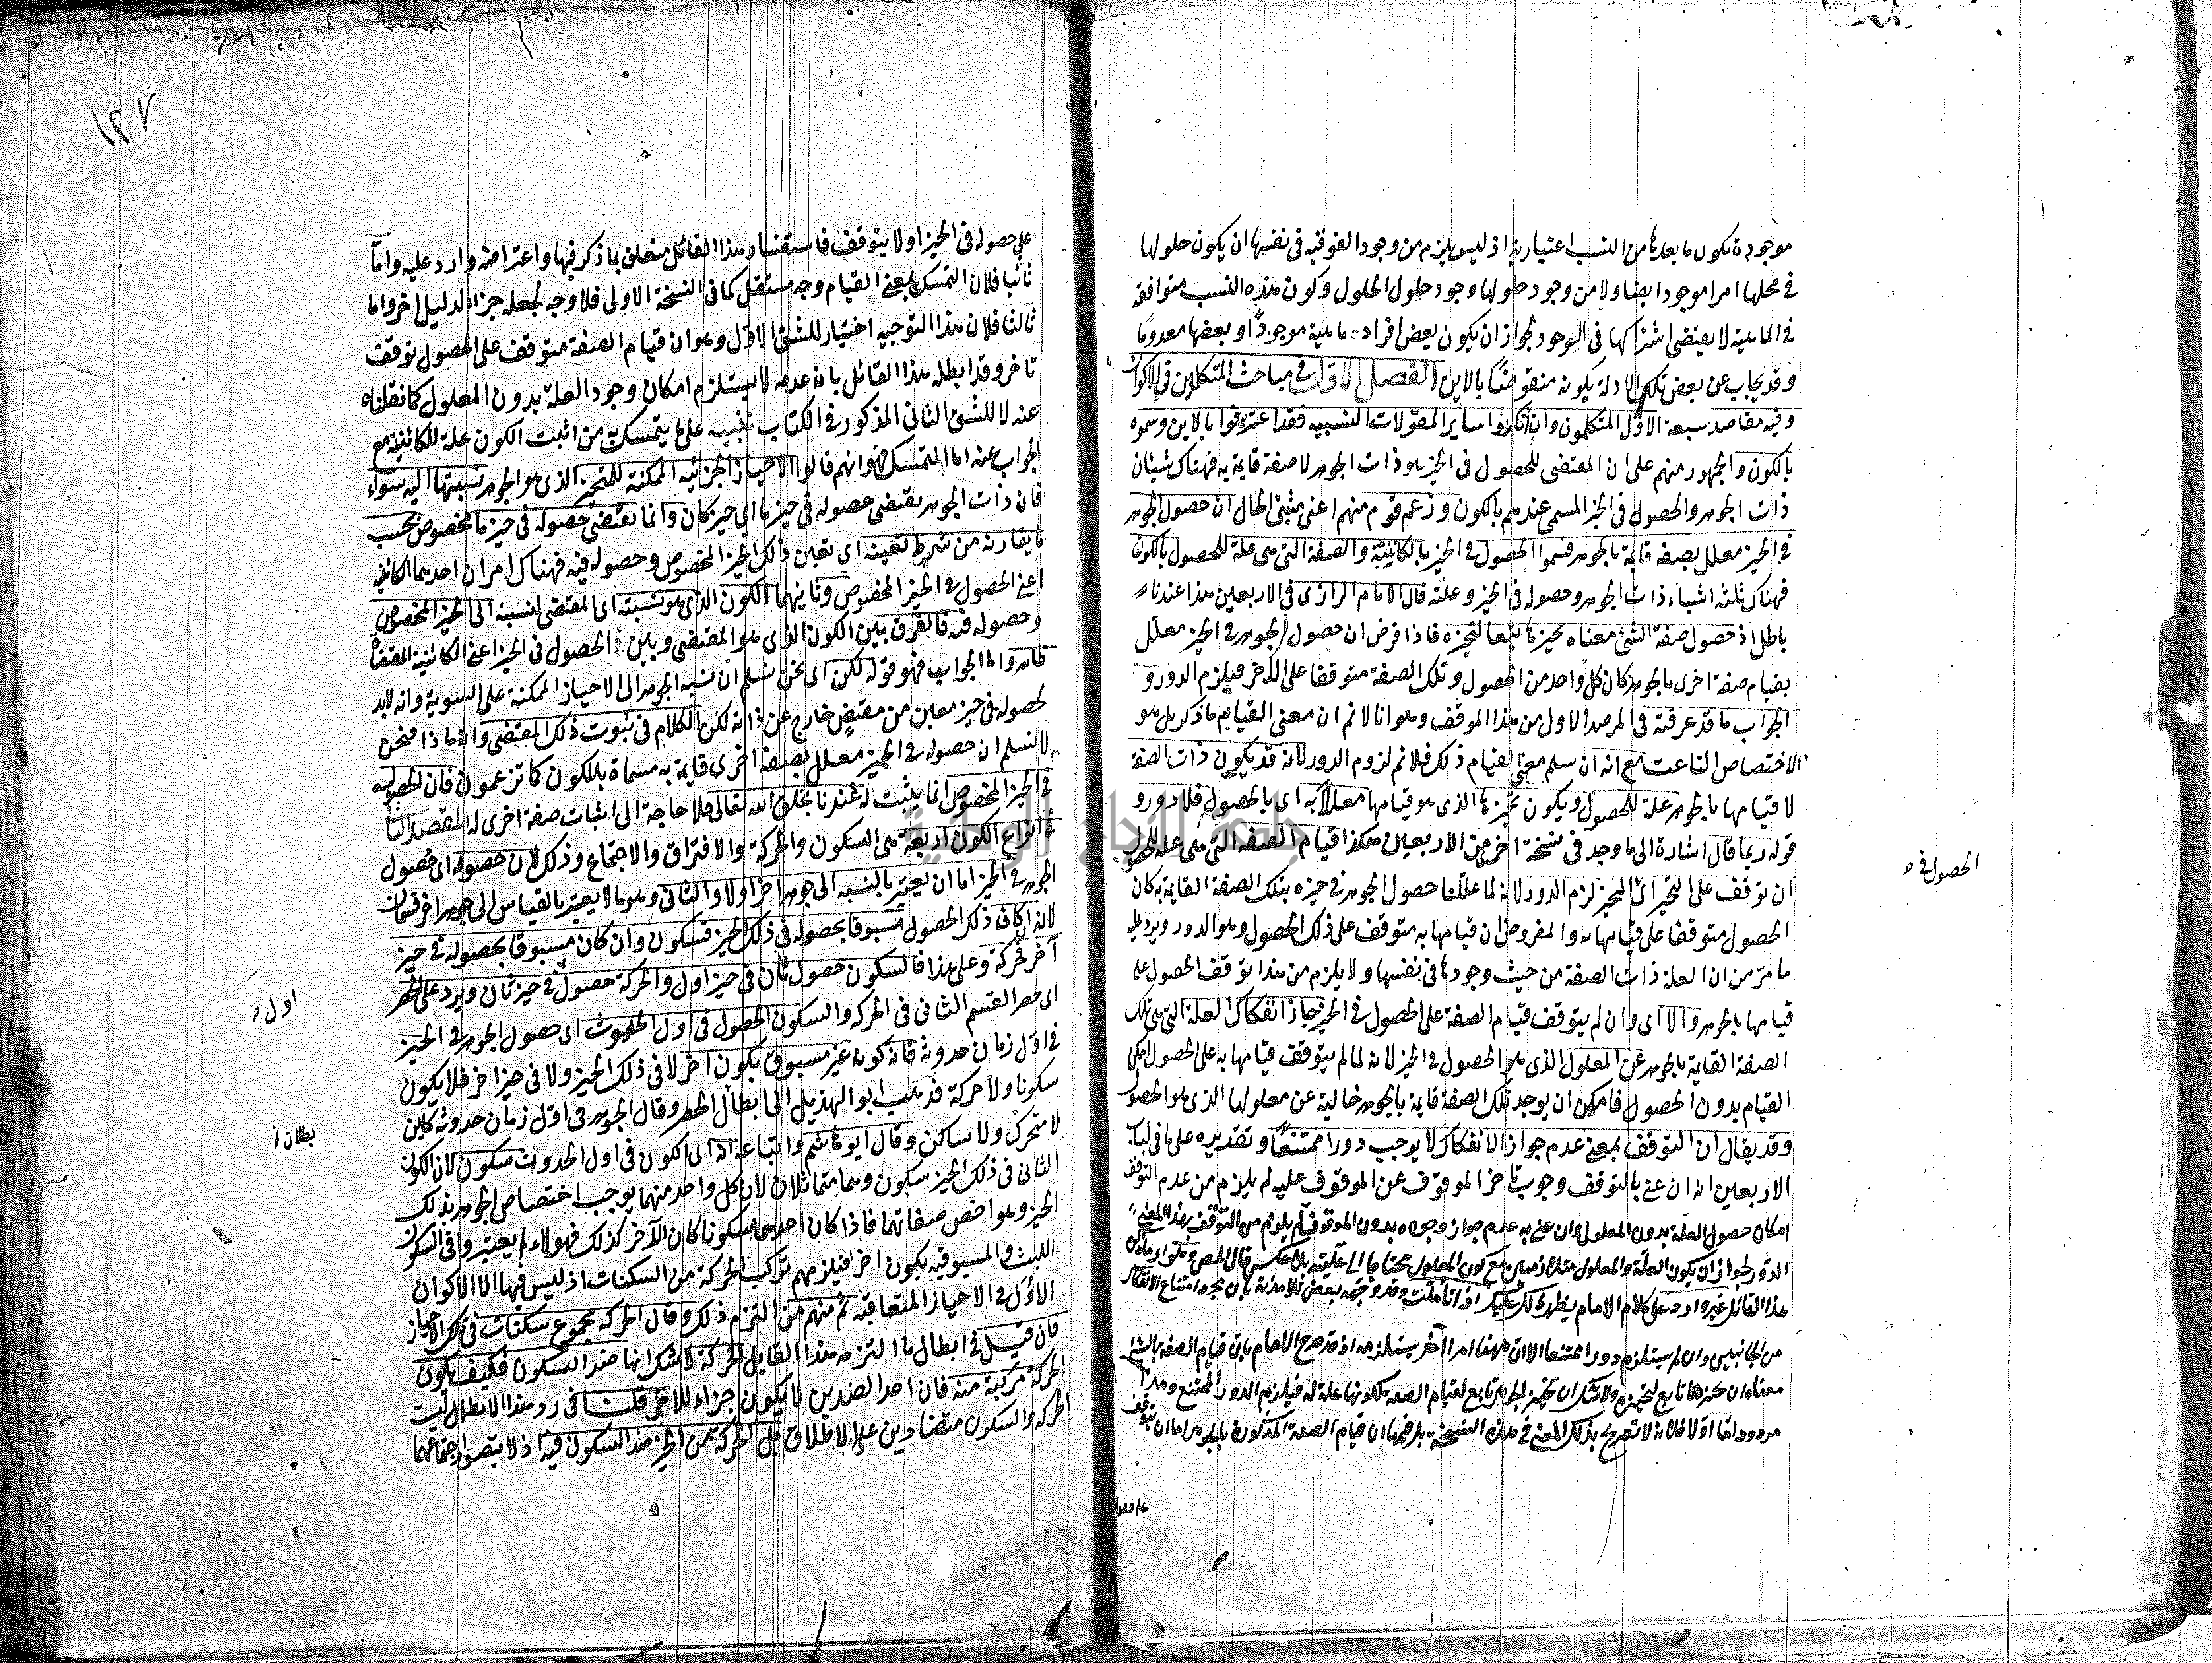 موجودة فيكون ما بعدها من النسب اعتبارية اذ ليس يلزم من وجود الفوقية في نفسها ان يكون حلولها
في محلها امرا موجودا ايضا ولا من وجود حلولها وجود حلول الحلول وكون هذه النسب متوافقة
في الماهية لا يقتضي اشتراكها في الوجود لجواز ان يكون بعض افراد ماهية موجودًا وبعضها معدومًا
وقد يجاب عن بعض تلك الادلة بكونه منقوضًا بالاين الفصل الاول في مباحث المتكلمين في الاكوان
وفيه مقاصد سبعة الاول المتكلمون وان انكروا ساير المقولات النسبية فقد اعترفوا بالاين وسموه
بالكون والجمهور منهم على ان المقتضي للحصول في الحيز هو ذات الجوهر لا صفة قايمة به فهناك شيئان
ذات الجوهر والحصول في الحيز المسمى عندهم بالكون وزعم قوم منهم اعني مثبتي الحال ان حصول الجوهر
في الحيز معلل بصفة قايمة بالجوهر فسموا الحصول في الحيز بالكائنية والصفة التي هي علة للحصول بالكون
فهناك ثلثة اشياء ذات الجوهر وحصوله في الحيز وعلته قال الامام الرازي في الاربعين هذا عندنا
باطل اذ حصول صفة الشئ معناه تحيزها تبعا لتحيزه فاذا فرض ان حصول الجوهر في الحيز معلل
بقيام صفة اخرى بالجوهر كان كل واحد من الحصول وتلك الصفة متوقفا على الاخر فيلزم الدور و
الجواب ما قد عرفته في المرصد الاول من هذا الموقف وهو انا لا نم ان معنى القيام ما ذكر بل هو
الاختصاص الناعت مع انه ان سلم معنى القيام ذلك فلا نم لزوم الدور لانه قد يكون ذات الصفة
لا قيامها بالجوهر علة للحصول ويكون تحيزها الذي هو قيامها معللاً به اي بالحصول فلا دور و
قوله ربما قال اشارة الى ما وجد في نسخة اخرى من الاربعين هكذا قيام الصفة التي هي علة للحصول
الحصول في
ان توقف على التحيز اي التحيز لزم الدور لانه لما عللنا حصول الجوهر في حيزه بتلك الصفة القايمة به كان
الحصول متوقفا على قيامها به والمفروض ان قيامها به متوقف على ذلك الحصول وهو الدور ويرد عليه
ما مر من ان العلة ذات الصفة من حيث وجودها في نفسها ولا يلزم من هذا توقف الحصول على
قيامها بالجوهر والا اي وان لم يتوقف قيام الصفة على الحصول في الحيز جاز انفكاك العلة التي هي تلك
الصفة القايمة بالجوهر عن المعلول الذي هو الحصول في الحيز لانه لما لم يتوقف قيامها به على الحصول امكن
القيام بدون الحصول فامكن ان يوجد تلك الصفة قايمة بالجوهر خالية عن معلولها الذي هو الحصول
وقد يقال ان التوقف بمعنى عدم جواز الانفكاك لا يوجب دورا ممتنعًا وتقديره على ما في لباب
الاربعين انه ان عنى بالتوقف وجوب تاخر الموقوف عن الموقوف عليه لم يلزم من عدم التوقف
امكان حصول العلة بدون المعلول وان عنى به عدم جواز وجوده بدون الموقوف لم يلزم من التوقف بهذا المعنى
الدور لجواز ان يكون العلة والمعلول متلازمين مع كون المعلول محتاجا الى علته بلا عكس قال المص وما اورده
هذا القائل غير وارد على كلام الامام يظهر ذلك عليك اذا تاملت وقد وجهه بعض تلامذته بان مجرد امتناع الانفكاك
من الجانبين وان لم يستلزم دورا ممتنعا الا ان ههنا امرا آخر يستلزمه اذ قد صرح الامام بان قيام الصفة بالشئ
معناه ان تحيزها تابع لتحيزه ولا شك ان تحيز الجوهر تابع لقيام الصفة لكونها علة له فيلزم الدور الممتنع وهذا
مردود اما اولا فلانه لا تصريح بذلك المعنى في هذه النسخة بل فيها ان قيام الصفة المذكورة بالجوهر اما ان يتوقف
١٢٧
على حصوله في الحيز او لا يتوقف فاستفسار هذا القائل متعلق بما ذكر فيها واعتراضه وارد عليه واما
ثانيا فلان التمسك بمعنى القيام وجه مستقل كما في النسخة الاولى فلا وجه لجعله جزء الدليل اخر واما
ثالثا فلان هذا التوجيه اختيار للشق الاول وهو ان قيام الصفة متوقف على الحصول توقف
تاخر وقد ابطله هذا القائل بان عدمه لا يستلزم امكان وجود العلة بدون المعلول كما نقلناه
عنه لا للشق الثاني المذكور في الكتاب تنبيه على ما يتمسك به من اثبت الكون علة للكائنية مع
الجواب عنه اما التمسك فهو انهم قالوا الاحياز الجزئية الممكنة للمتحيز الذي هو الجوهر نسبتها اليه سواء
فان ذات الجوهر يقتضي حصوله في حيز ما اي حيز كان وانما يقتضي حصوله في حيز ما مخصوص بحسب
ما يقارنه من شرط تعينه اي تعين ذلك الحيز المخصوص وحصوله فيه فهناك امران احدهما الكائنية
اعني الحصول في الحيز المخصوص وثانيهما الكون الذي هو نسبته اي المقتضي لنسبته الى الحيز المخصوص
وحصوله فيه فالفرق بين الكون الذي هو المقتضي وبين الحصول في الحيز اعني الكائنية المقتضاة
ظاهر واما الجواب فهو قوله لكن اي نحن نسلم ان نسبة الجوهر الى الاحياز الممكنة على السوية وانه لابد
لحصوله في حيز معين من مقتضٍ خارج عن ذاته لكن الكلام في ثبوت ذلك المقتضي وانه ماذا فنحن
لا نسلم ان حصوله في الحيز معلل بصفة اخرى قايمة به مسماة بالكون كما تزعمون فان الحصول
في الحيز المخصوص انما يثبت له عندنا بخلق الله تعالى فلا حاجة الى اثبات صفة اخرى له المقصد الثاني
في انواع الكون اربعة هي السكون والحركة والافتراق والاجتماع وذلك لان حصوله اي حصول
الجوهر في الحيز اما ان يعتبر بالنسبة الى جوهر اخر او لا والثاني وهو ما لا يعتبر بالقياس الى جوهر اخر قسمان
لانه ان كان ذلك الحصول مسبوقا بحصوله في ذلك الحيز فسكون وان كان مسبوقا بحصوله في حيز
آخر فحركة وعلى هذا فالسكون حصول ثان في حيز اول والحركة حصول في حيز ثان ويرد على الحصر
اول
اي حصر القسم الثاني في الحركة والسكون الحصول في اول الحدوث اي حصول الجوهر في الحيز
في اول زمان حدوثه فانه كون غير مسبوق بكون اخر لا في ذلك الحيز ولا في حيز اخر فلا يكون
سكونا ولا حركة فذهب ابو الهذيل الى ابطال الحصر وقال الجوهر في اول زمان حدوثه كاين
بطلان
لا متحرك ولا ساكن وقال ابو هاشم واتباعه انه اي الكون في اول الحدوث سكون لان الكون
الثاني في ذلك الحيز سكون وهما متماثلان لان كل واحد منهما يوجب اختصاص الجوهر بذلك
الحيز وهو اخص صفاتهما فاذا كان احدهما سكونا كان الآخر كذلك فهولاء لم يعتبروا في السكون
اللبث والمسبوقية بكون اخر فيلزمهم تركب الحركة من السكنات اذ ليس فيها الا الاكوان
الاول في الاحياز المتعاقبة ثم منهم من التزم ذلك وقال الحركة مجموع سكنات في تلك الاحياز
فان قيل في ابطال ما التزمه هذا القايل الحركة لا شك انها ضد السكون فكيف تكون
الحركة مركبة منه فان احد الضدين لا يكون جزاء للاخر قلنا في رد هذا الابطال ليست
الحركة والسكون متضادين على الاطلاق بل الحركة من الحيز ضد السكون فيه اذ لا يتصور اجتماعهما